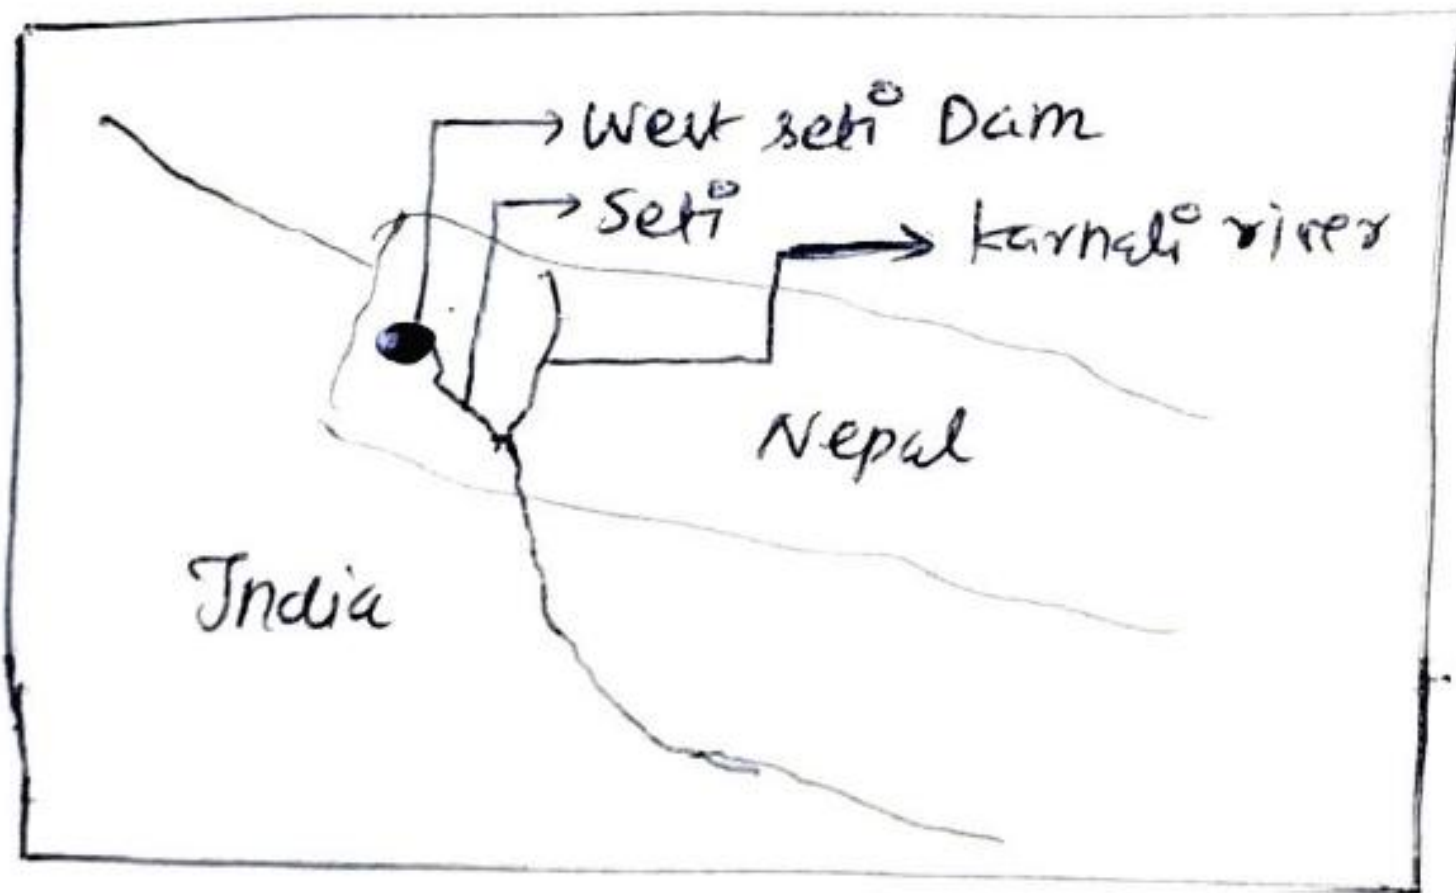 West seti Dam
Seti
karnali river
Nepal
India